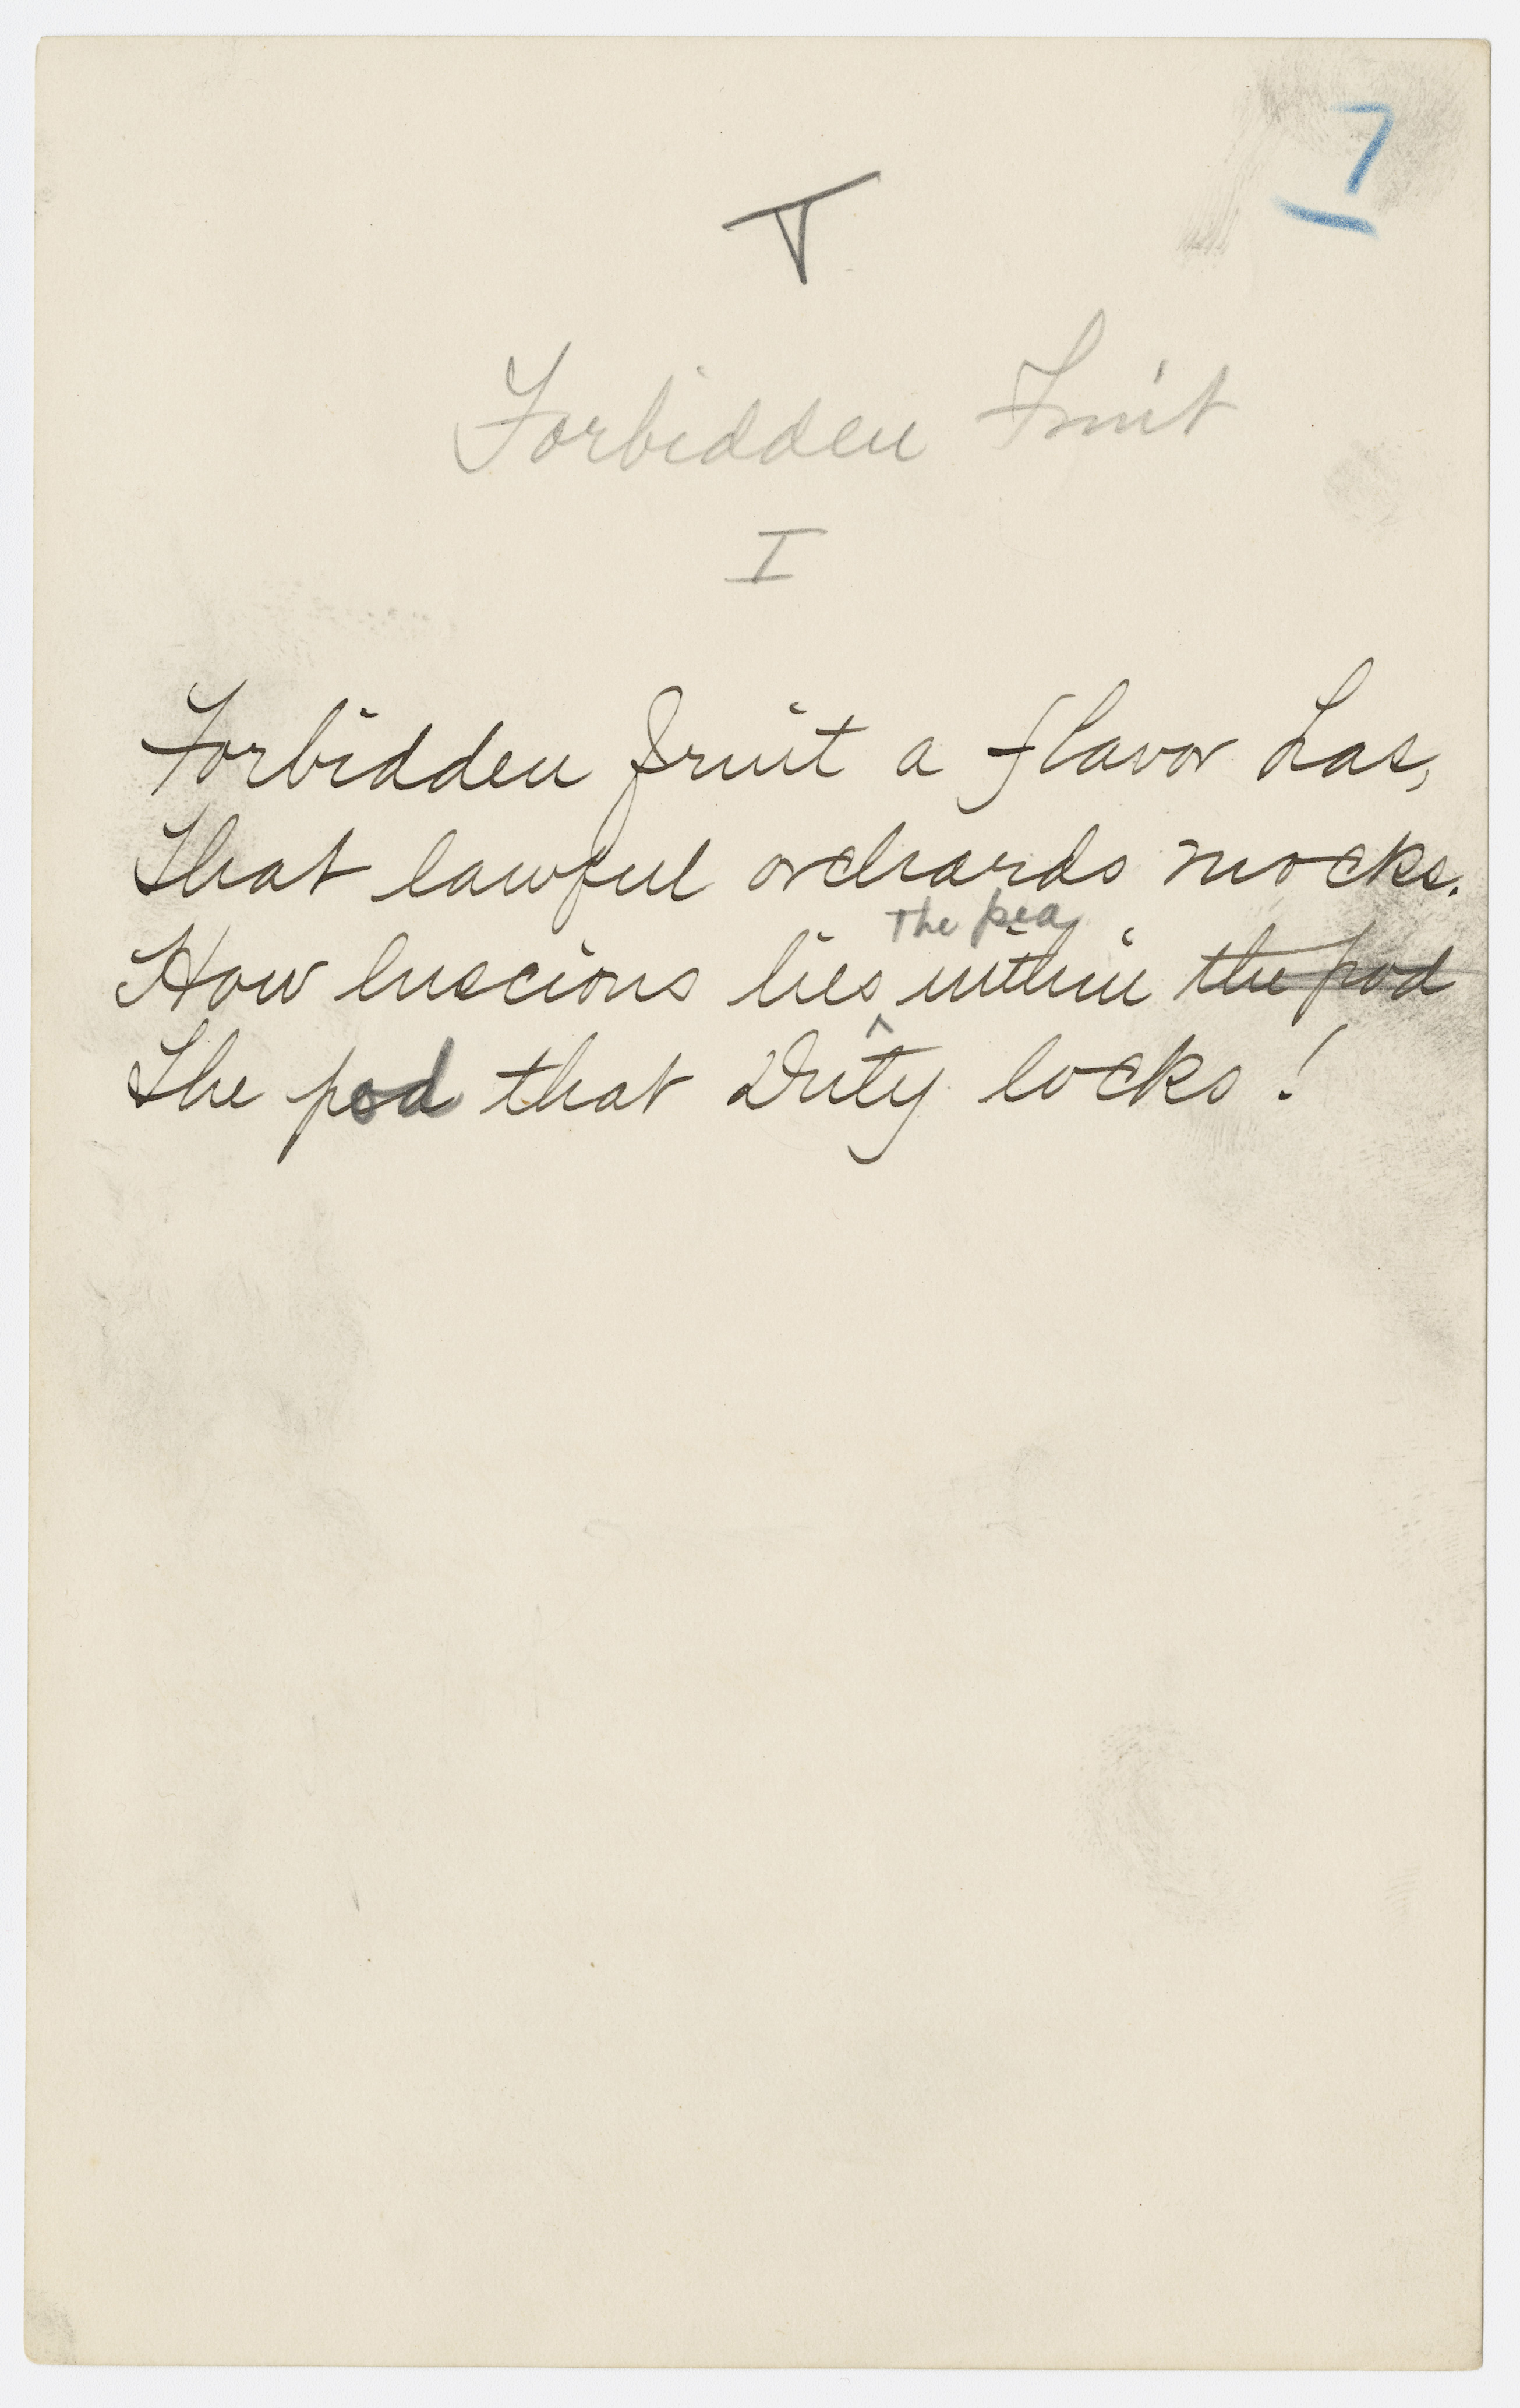 7
T
Forbidden Fruit
I
Forbidden fruit a flavor has,
That lawful orchards mocks.
The pea
How luscious lies ^ within the pod
The pod that Duty locks!